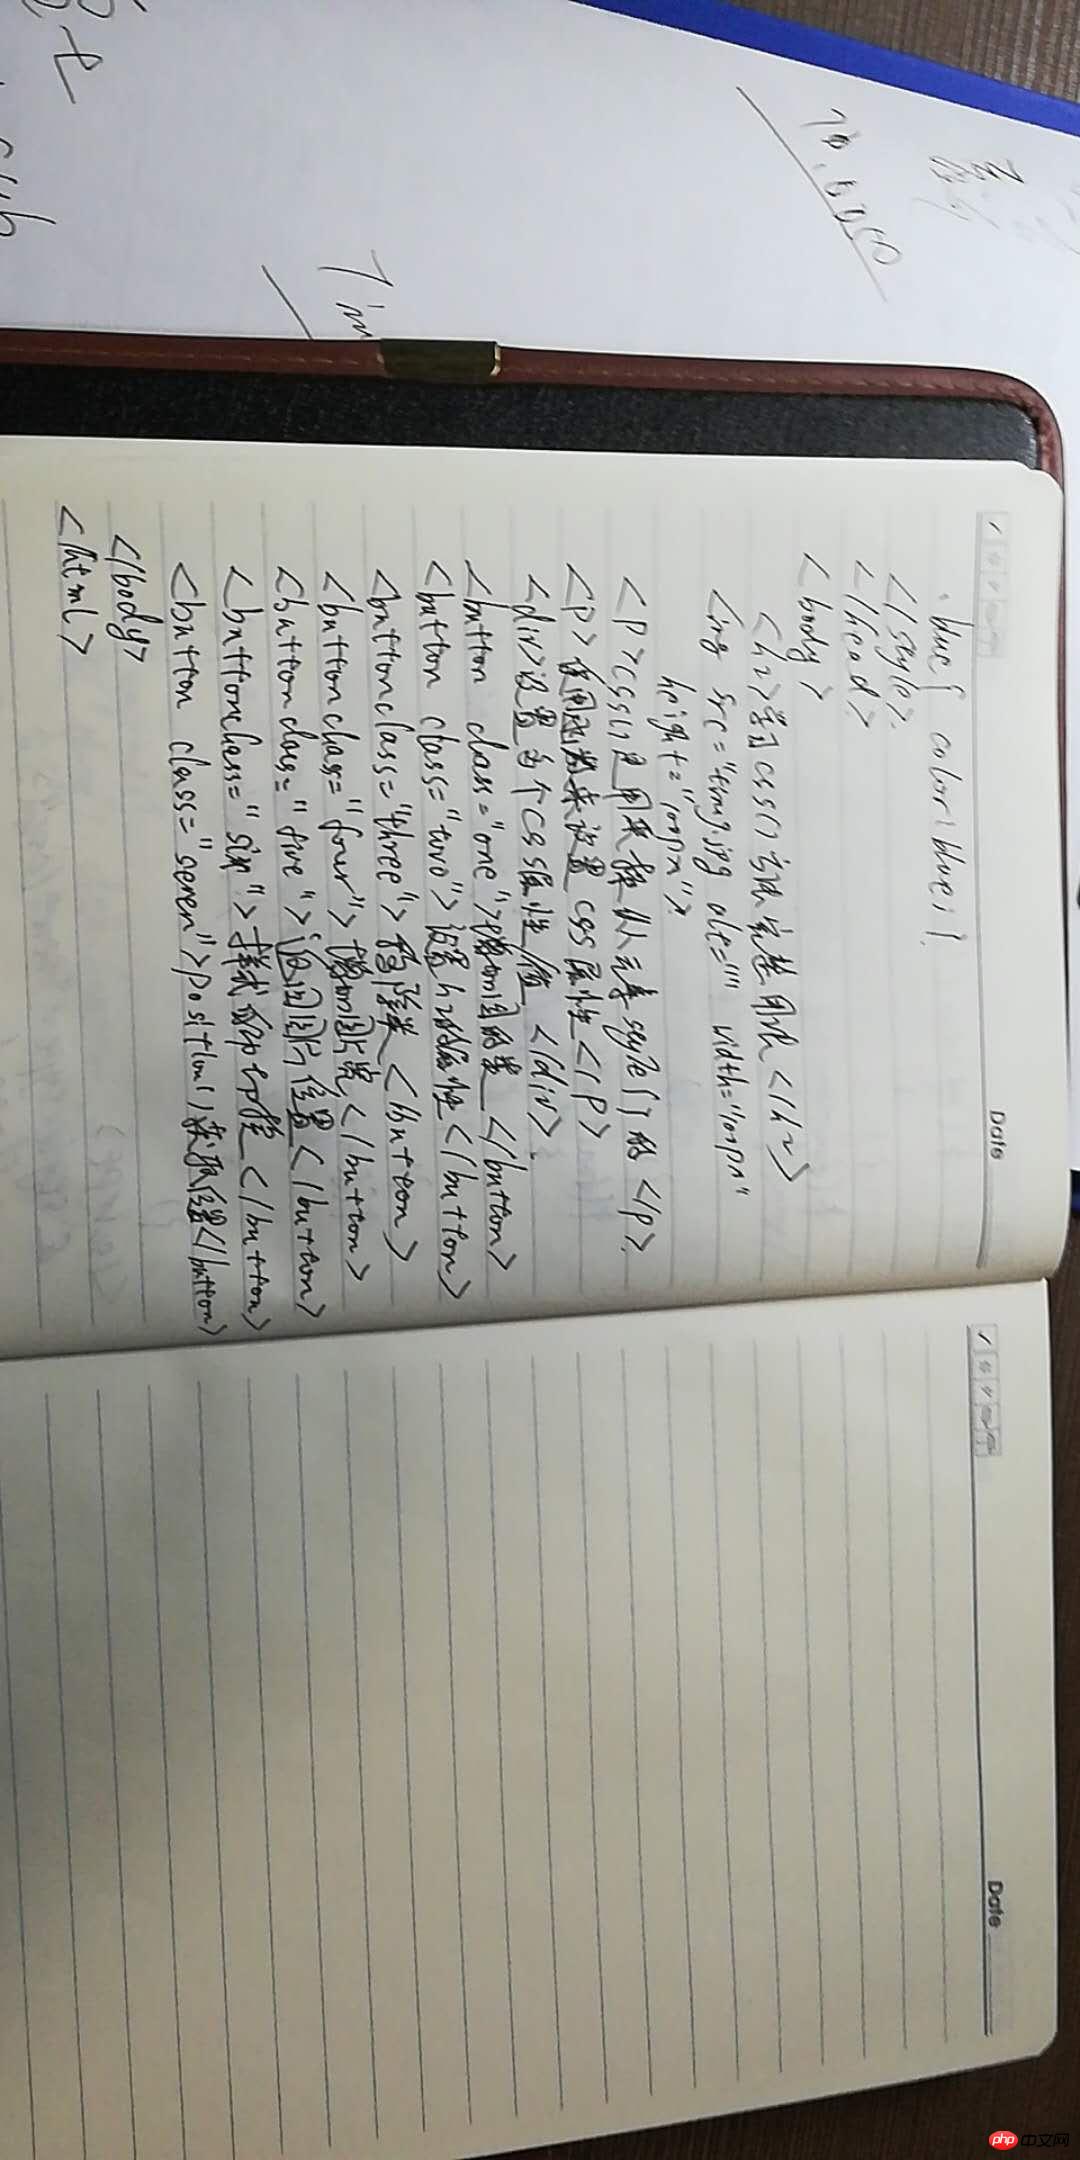 Date
.blue{ color:blue;}
</style>
</head>
<body>
<h2>学习css()方法完整用法</h2>
<img src="timg.jpg alt="" width="100px"
height="100px">
<p>css()是用来操作元素style[]的</p>
<p>使用函数来设置css属性</p>
<div>设置多个css属性值</div>
<button class="one">增加图的类</button>
<button class="two">设置h2的属性</button>
<button class="three">移除类</button>
<button class="four">增加图片宽</button>
<button class="five">返回图片位置</button>
<button class="six">样式</button>
<button class="seven">position()获取位置</button>
</body>
<html>
Date
7in
php 中文网